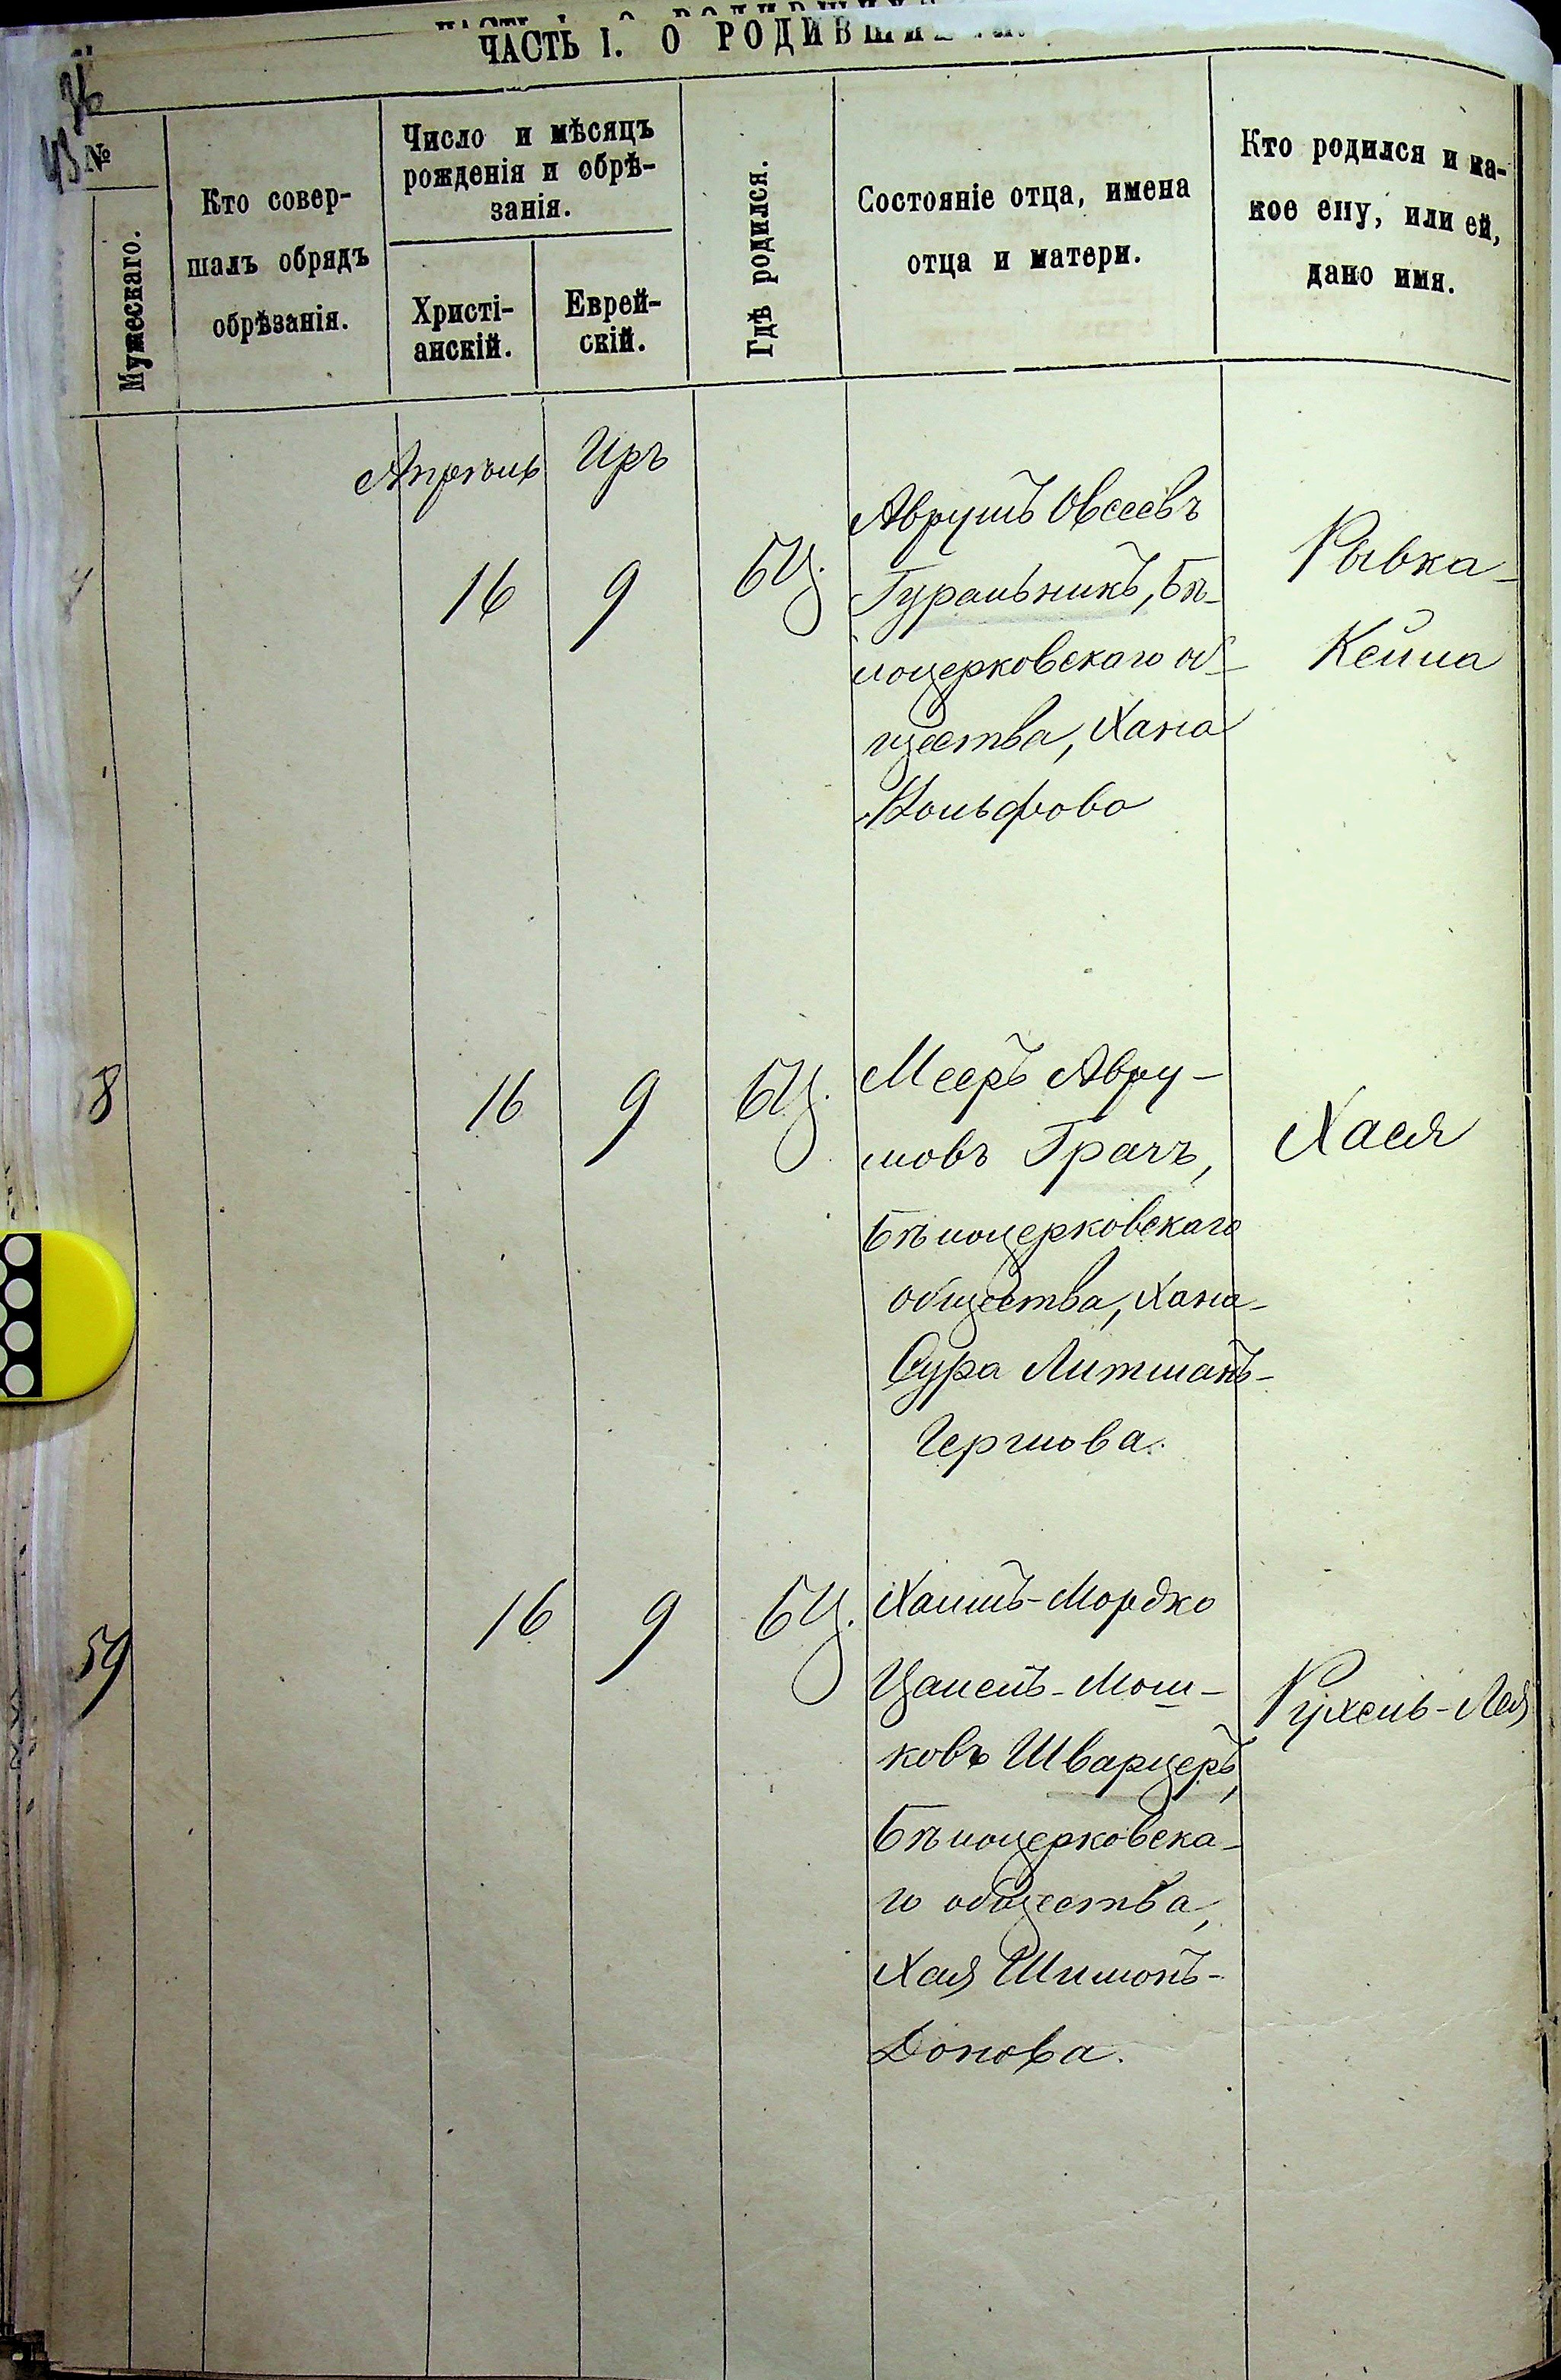 ЧАСТЬ I. О РОДИВШИХСЯ.
36
№
Мужескаго.
Кто совер-
шалъ обрядъ
обрѣзанія.
Число и мѣсяцъ
рожденія и обрѣ-
занія.
Христі-
анскій.
Еврей-
скій.
Гдѣ родился.
Состояніе отца, имена
отца и матери.
Кто родился и ка-
кое ему, или ей,
дано имя.
Апрѣль Иръ
16 9 БЦ.
Аврумъ Овсеевъ
Гуральникъ, Бѣ-
лоцерковскаго об-
щества, Хана
Вольфова
Рывка-
Кейла
58 16 9 БЦ.
Мееръ Авру-
мовъ Грачъ,
Бѣлоцерковскаго
общества, Хана-
Сура Литманъ-
Гершова.
Хася
59 16 9 БЦ.
Хаимъ-Мордко
Цалелъ-Мош-
ковъ Шварцеръ,
Бѣлоцерковска-
го общества,
Хая Шимонъ-
Донова.
Рухель-Лея